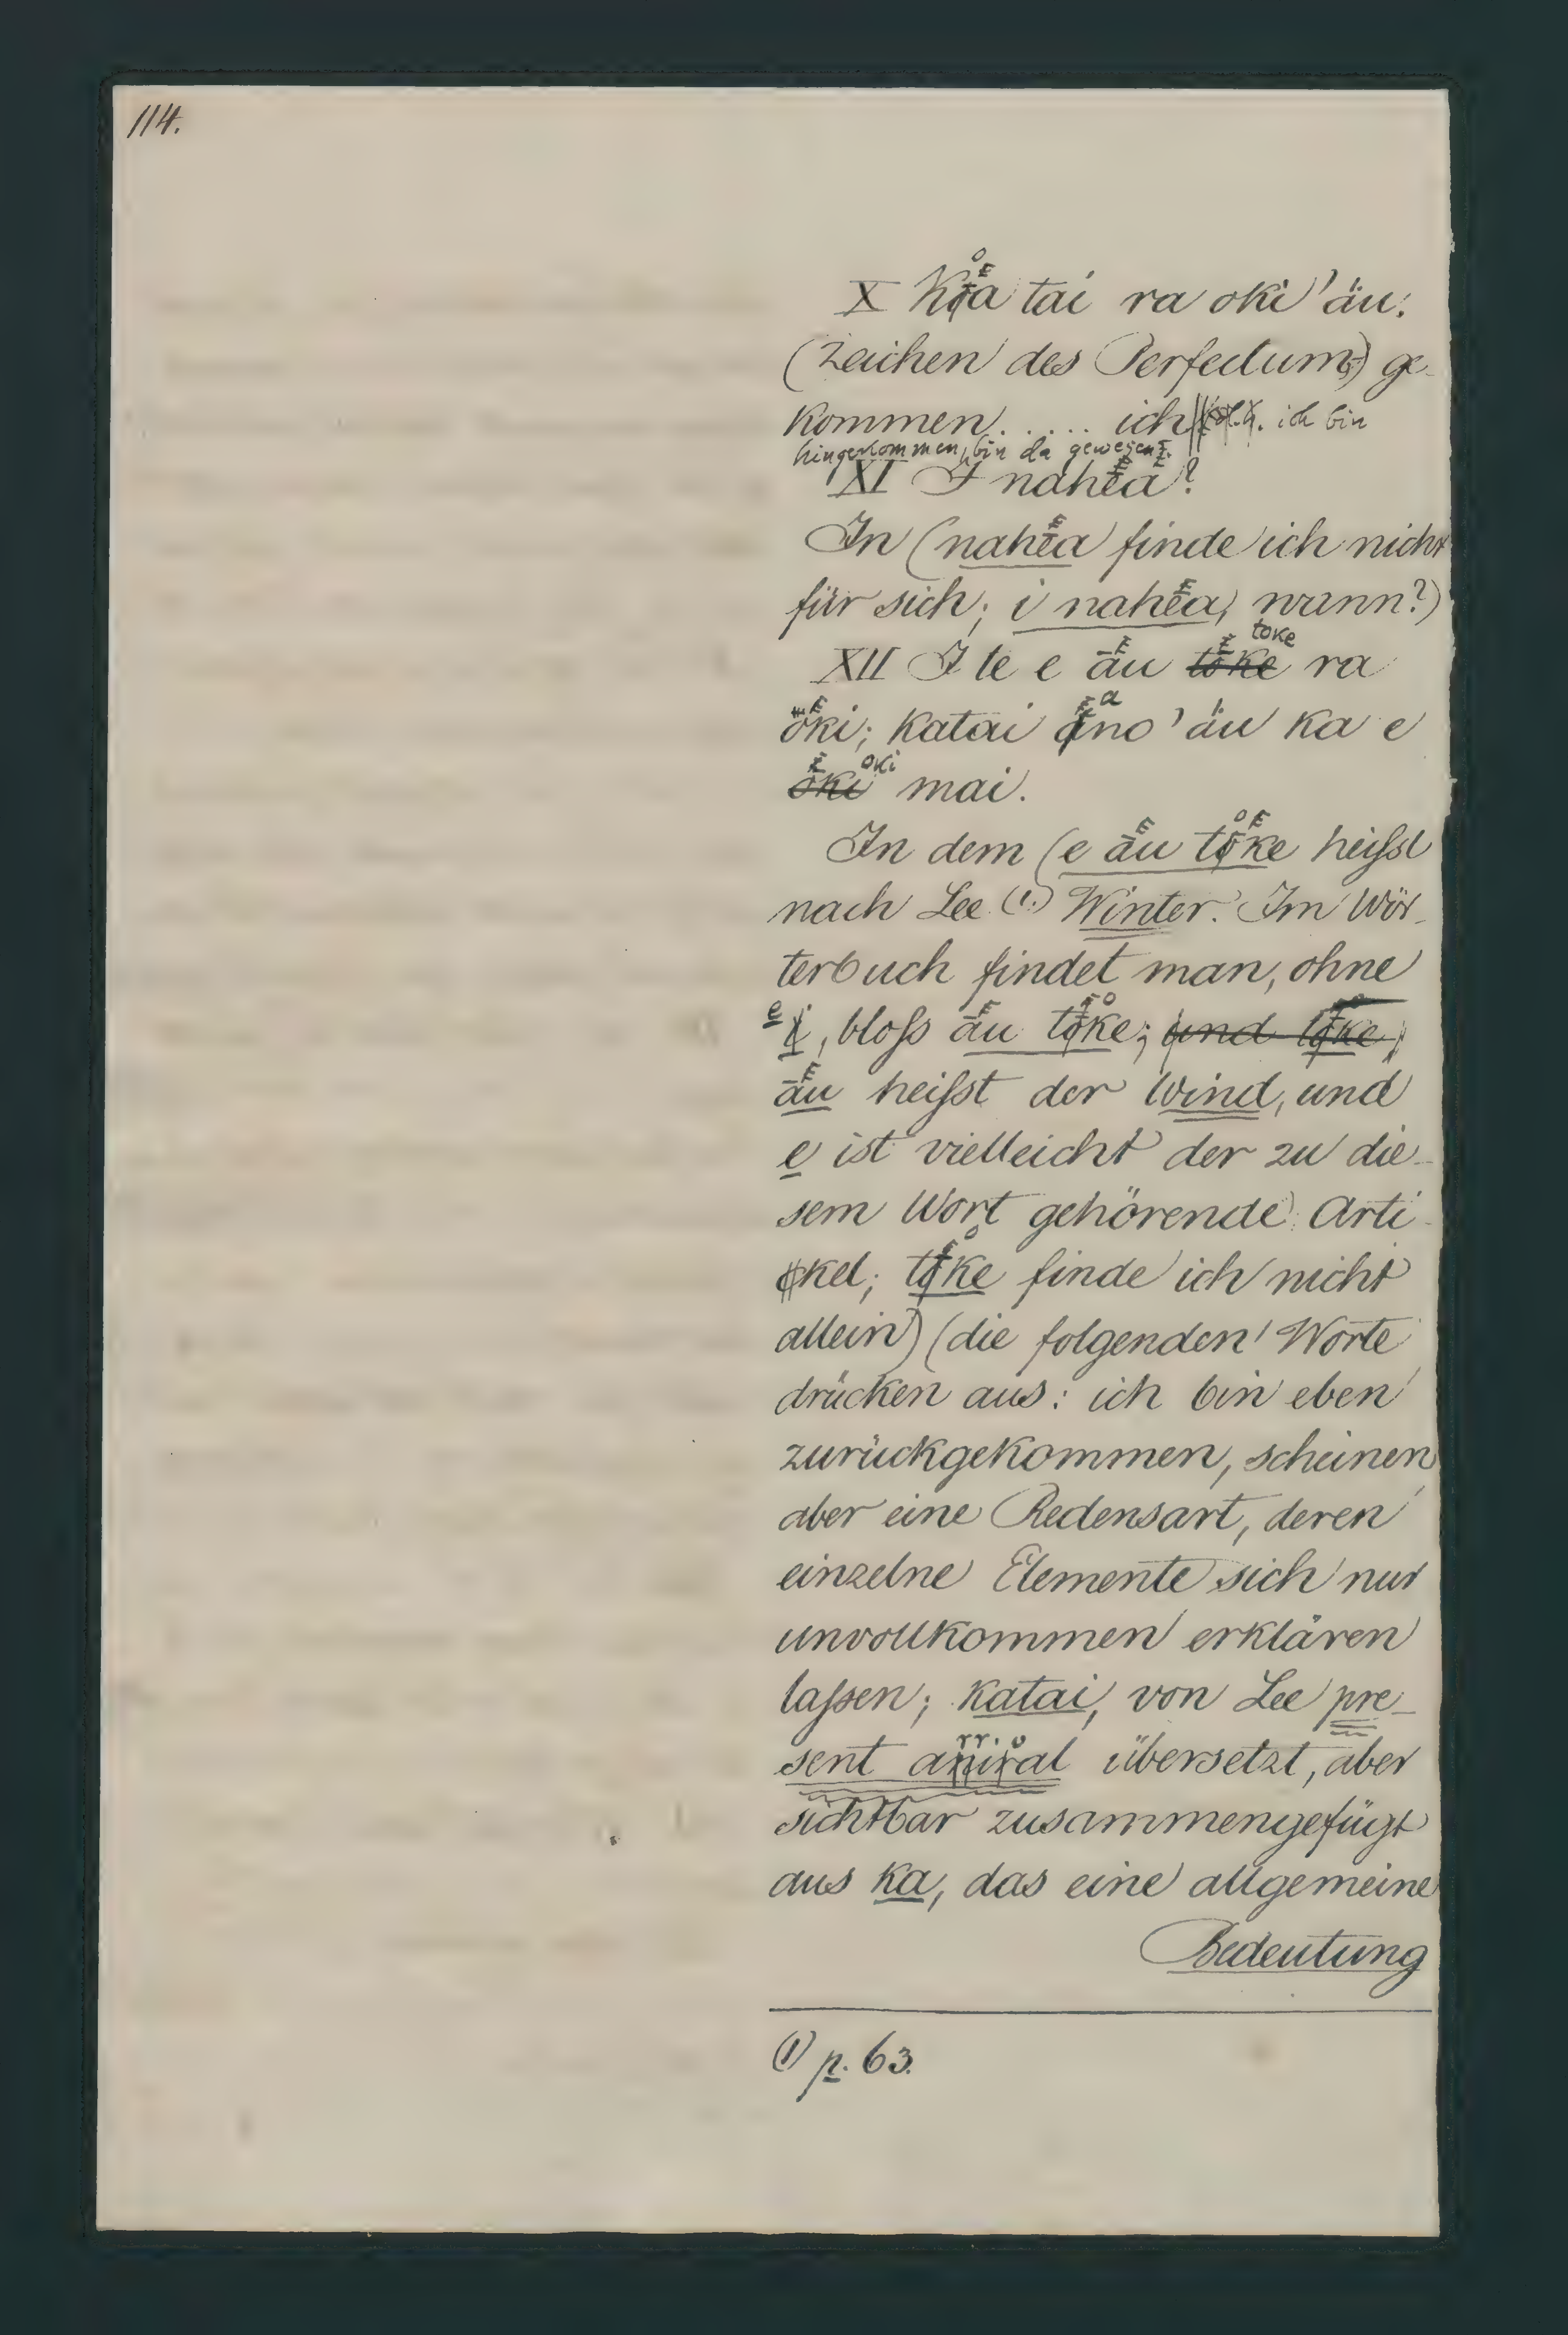 114.
X Koa tai ra oki 'äu.
(Zeichen des Perfectums) ge-
kommen...... ich d.h. ich bin
hingekommen, bin da gewesen.
XI I nahĕa?
In (nahĕa finde ich nicht
für sich; i nahĕa, wann?)
XII I te e äu toke ra
öki; katai ano 'äu ka e
oki mai.
In dem (e äu toke heiſst
nach Lee (1.) Winter. Im Wör-
terbuch findet man, ohne
e, bloſs äu toke; und toke,
äu heiſst der Wind, und
e ist vielleicht der zu die-
sem Wort gehörende Arti-
kel; toke finde ich nicht
allein) (die folgenden Worte
drücken aus: ich bin eben
zurückgekommen, scheinen
aber eine Redensart, deren
einzelne Elemente sich nur
unvollkommen erklären
laſsen; katai, von Lee pre-
sent arrival übersetzt, aber
sichtbar zusammengefügt
aus ka, das eine allgemeine
Bedeutung
(1) p. 63.